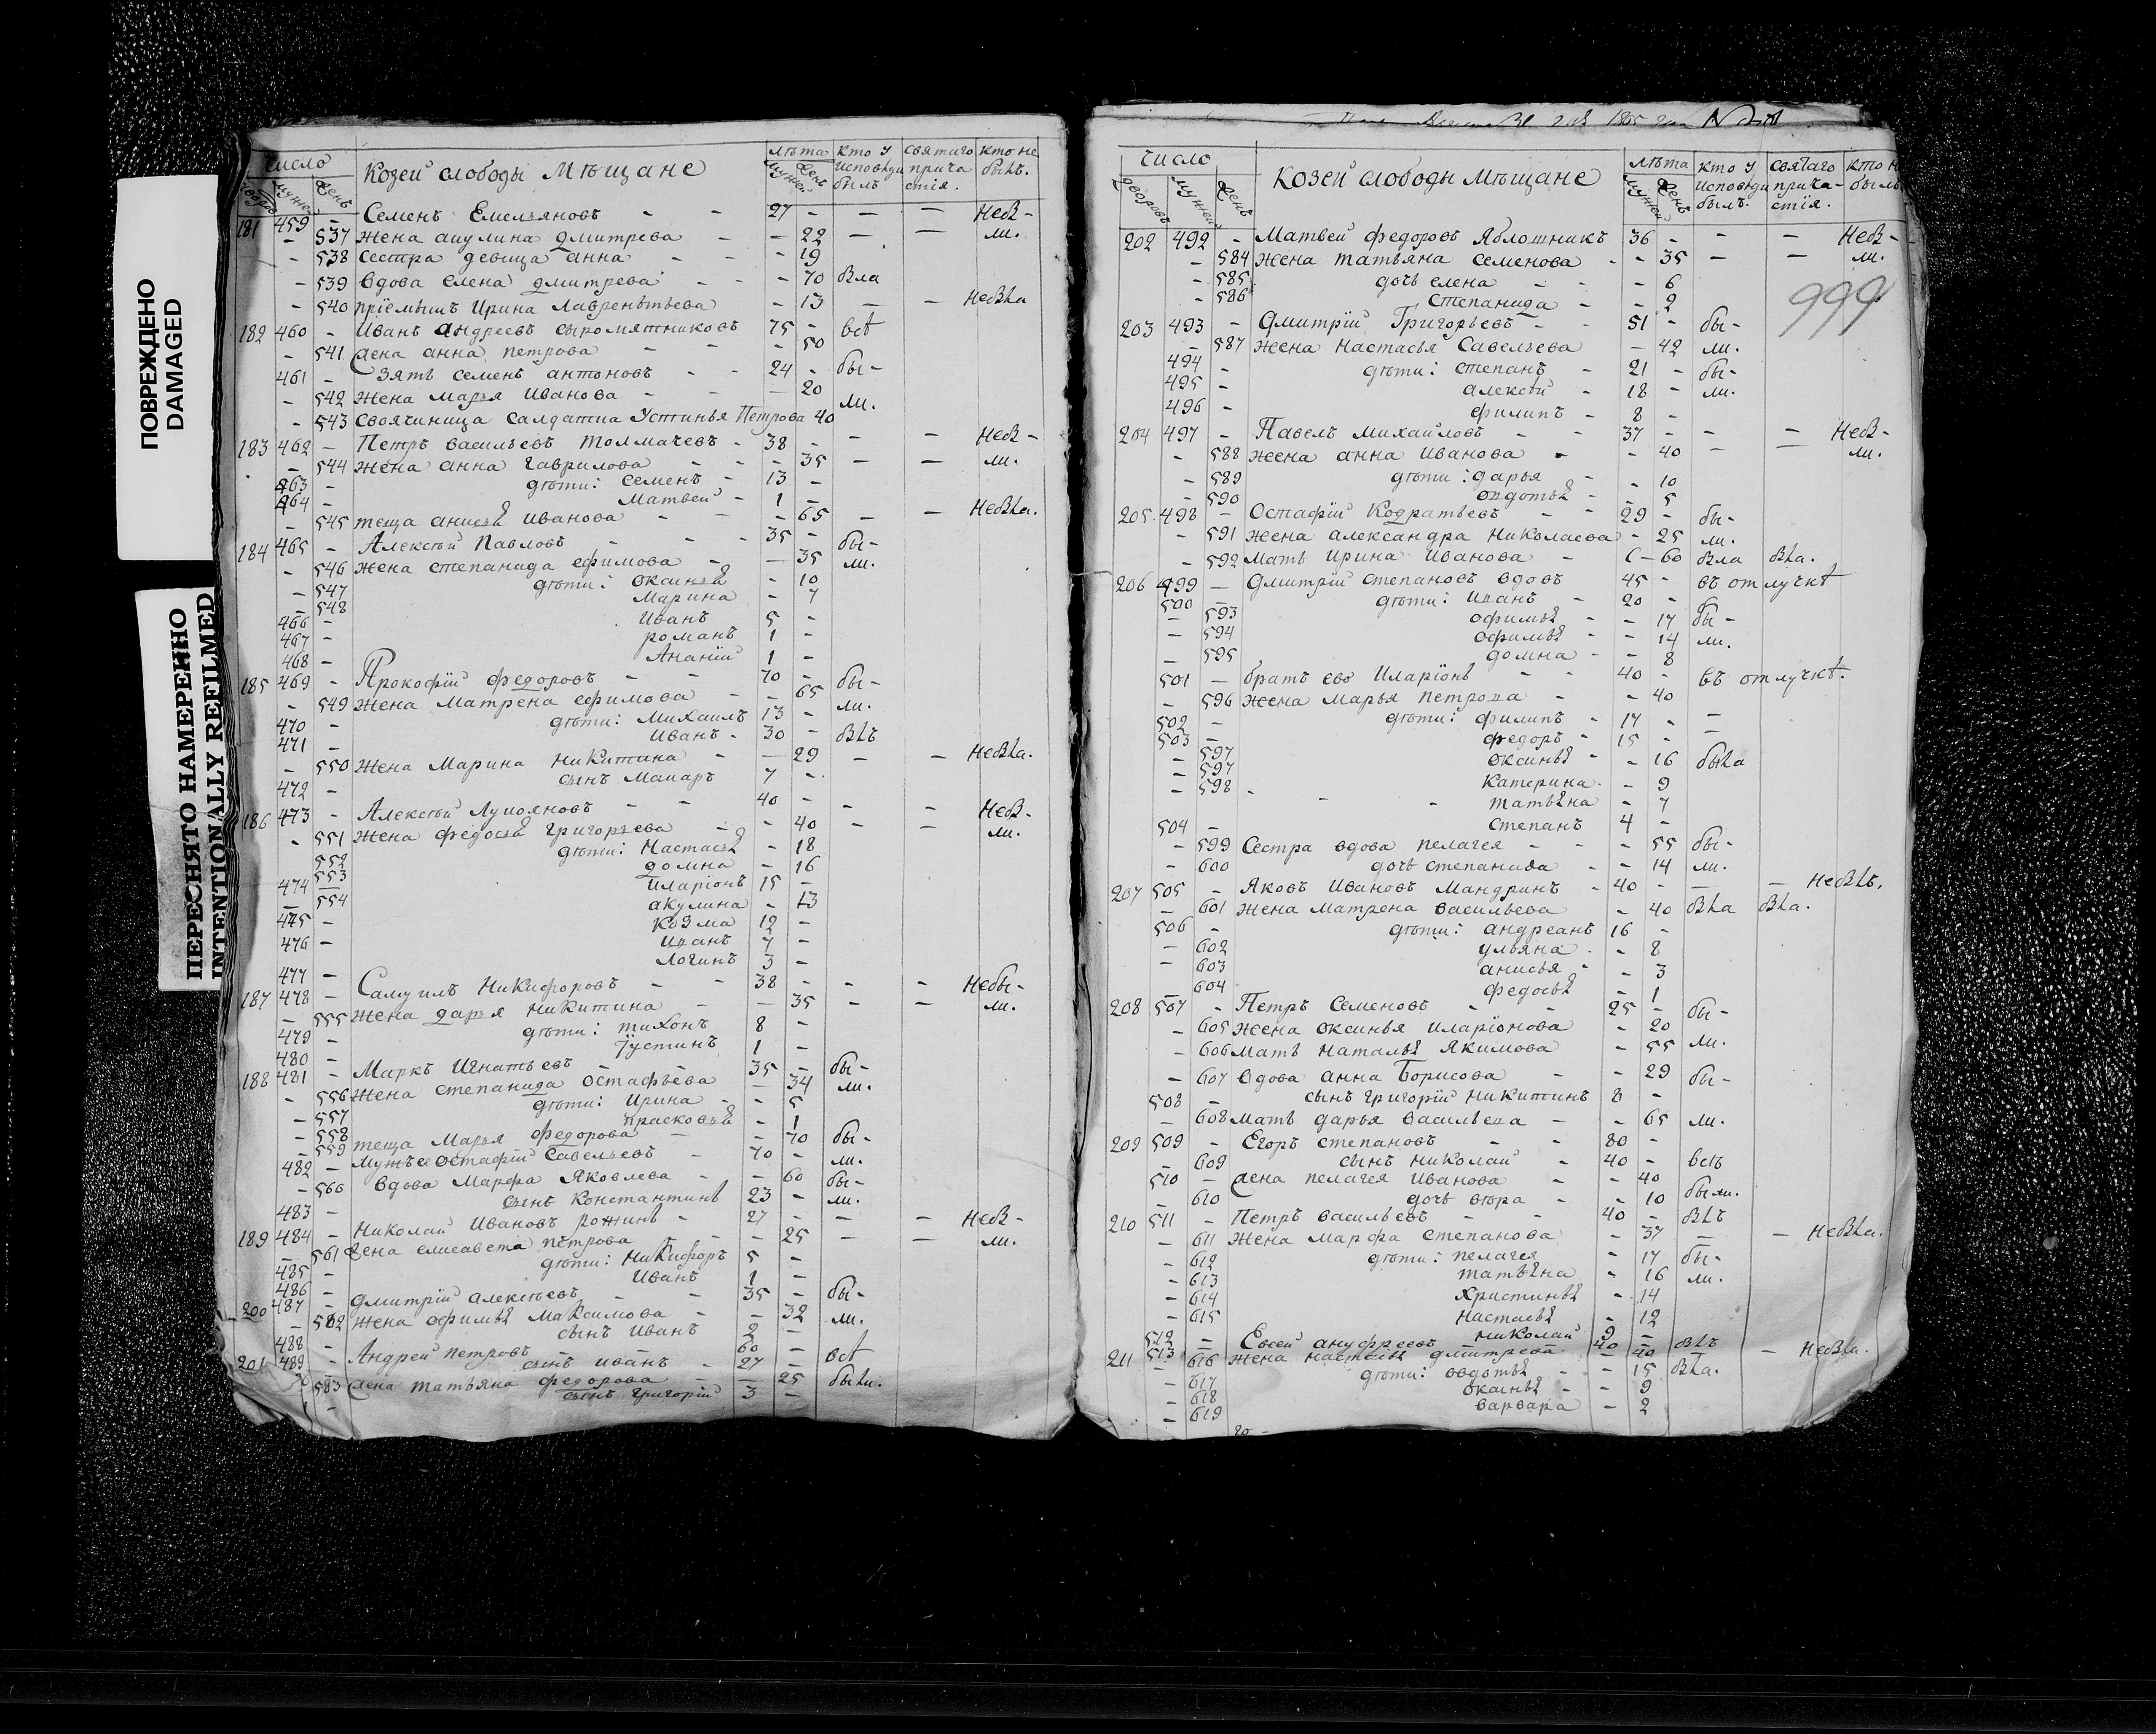 ПОВРЕЖДЕНО
DAMAGED
ПЕРЕСНЯТО НАМЕРЕННО
INTENTIONALLY REFILMED
число Козей слободы Мѣщане лѣта кто у исповѣди былъ святаго причастія. кто не былъ.
181 459 - Семенъ Емельяновъ - - 27 - — — Небы-
- 537 жена акулина дмитрева - - 22 — — ли.
- 538 сестра девица анна - - - 19
- 539 вдова елена дмитрева - - - 70 была
- 540 пріемышъ Ирина Лаврентьева - 13 — - Небыла
182 460 - Иванъ андреевъ сыромятниковъ 75 - всѣ
- 541 жена анна петрова - - - 50
461 - зять семенъ антоновъ - - 24 - бы-
- 542 жена марья Иванова - - — 20
- 543 своячиница салдатка Устинья Петрова 40 ли.
183 462 — Петръ васильевъ толмачевъ - 38 - — - Небы-
- 544 жена анна гаврилова - - - 35 — — ли.
463 - дѣти: семенъ - 13 -
464 - Матвей - 1 -
- 545 теща анисья иванова - - - 65 — - Небыла.
184 465 - Алексѣй Павловъ - - - 35 - бы-
- 546 жена степанида ефимова - — 35 ли.
- 547 дѣти: оксинья - 10
- 548 Марина - 7
466 - Иванъ 5 -
467 - романъ 1 -
468 - Ананій 1 -
185 469 - Прокофій федоровъ - - 70 - бы-
- 549 жена матрена ефимова - - 65 ли.
470 - дѣти: Михаилъ 13 -
471 - Иванъ - 30 - былъ
- 550 жена Марина никитина - — 29 - - Небыла.
472 - сынъ макаръ 7 -
186 473 - Алексѣй Лукояновъ - - 40 - - - Небы-
- 551 жена федосья григорьева - - 40 - - ли.
552 дѣти: Настасья - 18
553 домна - 16
474 — иларіонъ 15 -
- 554 акулина - 13
475 - козма 12 -
476 - иванъ 7 -
477 - логинъ 3 -
187 478 - Самуилъ Никифоровъ - - 38 - - - Небы-
- 555 жена дарья никитина - — 35 - - ли.
479 - дѣти: тихонъ 8 -
480 - їустинъ 1 -
188 481 - Маркъ Игнатьевъ - - 35 - бы-
- 556 жена степанида остафьева — 34 ли.
- 557 дѣти: Ирина - - 5
- 558 прасковья - 1
- 559 теща Марья федорова - - 70 бы-
482 - мужъ ея остафій савельевъ - 70 - ли.
- 560 вдова марфа Яковлева - - 60 бы-
483 - сынъ константинъ 23 - ли.
189 484 - Николай Ивановъ рожинъ - 27 - - - Небы-
- 561 жена елисавета петрова - - 25 - - ли.
485 - дѣти: никифоръ 5 -
486 - Иванъ 1 -
200 487 - дмитрій алексѣевъ - - 35 - бы-
- 582 жена офимья максимова - - 32 ли.
488 - сынъ иванъ 2 -
201 489 - Андрей петровъ - - 60 - всѣ
сынъ иванъ - 27 -
583 жена татьяна федорова - — 25 были.
сынъ григорій 3 -
число Козей слободы Мѣщане лѣта кто у исповѣди былъ. святаго причастія. кто не былъ
999
202 492 - Матвей федоровъ Яблошникъ 36 - - — Небы-
- 584 жена татьяна семенова - - 35 - — ли.
- 585 дочь елена - - - 6
- 586 степанида - - 2
203 493 - Дмитрій Григорьевъ - - 51 - бы-
- 587 жена настасья Савельева — 42 ли.
494 - дѣти: степанъ - 21 - бы-
495 - алексѣй - 18 - ли.
496 - филипъ - 8 -
204 497 - Павелъ михайловъ - - 37 - - — Небы-
- 588 жена анна иванова - - 40 - — ли.
- 589 дѣти: дарья - - 10
- 590 овдотья - - 5
205 498 - Остафій Кодратьевъ - - 29 - бы-
- 591 жена александра николаева - 25 ли.
- 592 мать ирина иванова - - 60 была была.
206 499 — Дмитрій степановъ вдовъ 45 - въ отлучкѣ
500 - дѣти: иванъ - 20 -
- 593 офимья - - 17 бы-
- 594 офимья - - 14 ли.
- 595 домна - - 8
501 — братъ его Иларіонъ - - 40 - въ отлучкѣ.
- 596 жена марья петрова - - 40
502 - дѣти: филипъ - 17 - -
503 - федоръ - 15 - -
- 597 оксинья - - 16 была
- 597 катерина - - 9
- 598 татьяна - 7
504 - степанъ 4 -
- 599 Сестра вдова пелагея - - - 55 бы-
- 600 дочь степанида - - 14 ли.
207 505 - Яковъ Ивановъ Мандринъ - 40 - — — Небылъ.
- 601 жена матрена васильева - 40 была была.
506 - дѣти: андреанъ 16 -
- 602 ульяна - - 8
- 603 анисья - - 3
- 604 федосья - 1
208 507 - Петръ Семеновъ - - 25 - бы-
- 605 жена оксинья иларіонова - 20
- 606 мать наталья Якимова - 55 ли.
- 607 вдова анна борисова - - 29 бы-
508 - сынъ григорій никитинъ 8 -
- 608 мать дарья васильева - - 65 ли.
209 509 - Егоръ степановъ - - 80 -
- 609 сынъ николай - 40 - всѣ
510 - жена пелагея иванова - - 40
610 дочь - - 10 были.
210 511 - Петръ васильевъ - - 40 - былъ
- 611 жена марфа степанова - 37 — - Небыла.
- 612 дѣти: пелагея - 17 бы-
- 613 татьяна - 16 ли.
- 614 христинья - 14
- 615 настасья - 12
512 - николай 9 -
211 513 - Евсей ануфреевъ 40 - былъ
- 616 жена настасья дмитрева - 40 - Небыла.
- 617 дѣти: овдотья - - 15 была.
- 618 оксинья - - 9
- 619 варвара - 2